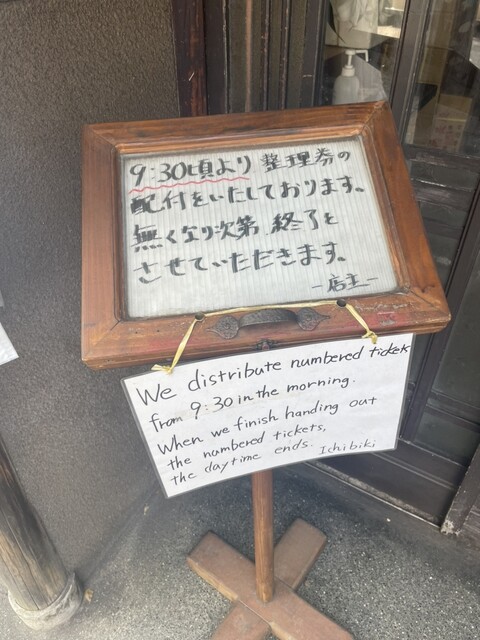 9:30頃より 整理券の
配付をいたしております。
無くなり次第 終了と
させていただきます。
-店主-
We distribute numbered tickets
from 9:30 in the morning.
When we finish handing out
the numbered tickets,
the daytime ends. Ichibiki